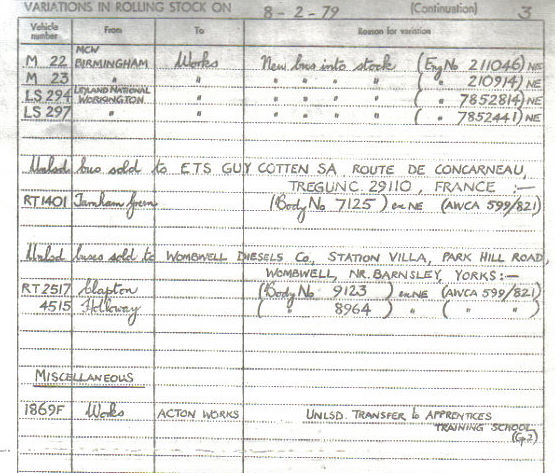 VARIATIONS IN ROLLING STOCK ON 8-2-79 (Continuation) 3
Vehicle number From To Reason for variation
M 22 MCW BIRMINGHAM Works New bus into stock (Eng No 211046) NE
M 23 " " " " " " ( " 210914) NE
LS 294 LEYLAND NATIONAL WORKINGTON " " " " " ( " 7852814) NE
LS 297 " " " " " " ( " 7852441) NE
Unlsd bus sold to ETS GUY COTTEN SA, ROUTE DE CONCARNEAU,
TREGUNC 29110, FRANCE :—
RT1401 Turnham Green (Body No 7125) ex NE (AWCA 599/821)
Unlsd buses sold to WOMBWELL DIESELS Co, STATION VILLA, PARK HILL ROAD,
WOMBWELL, NR. BARNSLEY, YORKS :—
RT2517 Clapton (Body No 9123) ex NE (AWCA 599/821)
4515 Holloway ( " 8964) " ( " " )
MISCELLANEOUS
1869F Works ACTON WORKS UNLSD. TRANSFER to APPRENTICES
TRAINING SCHOOL
(G2)